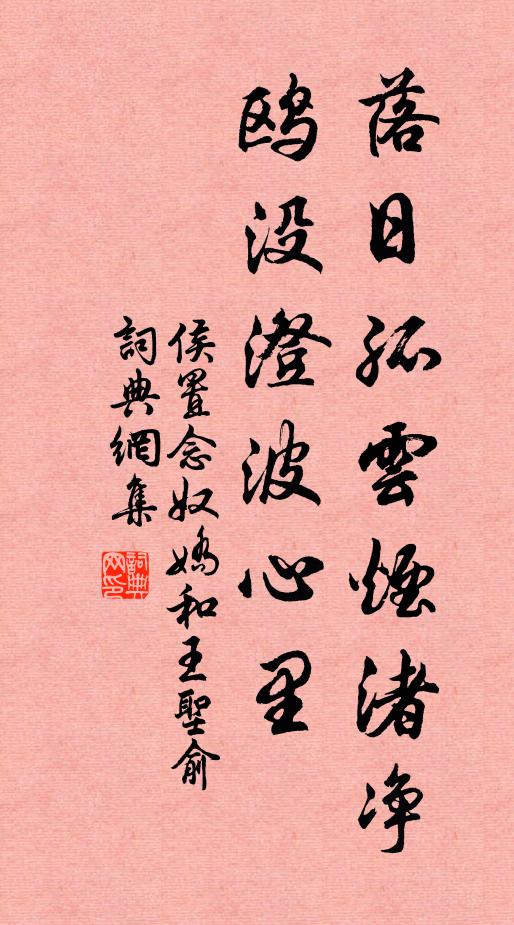 落日孤雲煙渚净
鸥没澄波心里
侯置念奴嬌和王聖俞
詞典網集
詞典网印